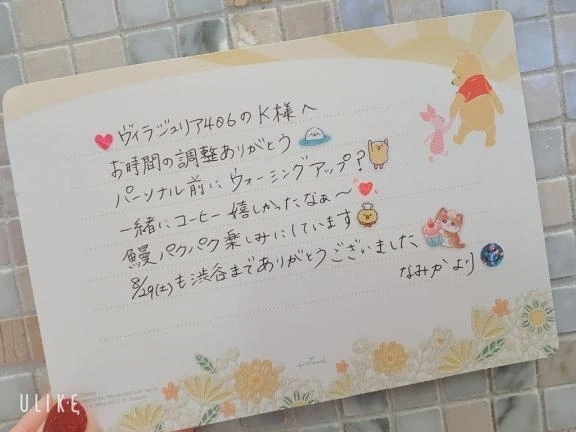 ヴィラジュリア406のK様へ
お時間の調整ありがとう
パーソナル前にウォーミングアップ?
一緒にコーヒー嬉しかったなぁ〜
鰻パクパク楽しみにしています
8/29(土)も渋谷までありがとうございました
なみかより
Hallmark
ULIKE